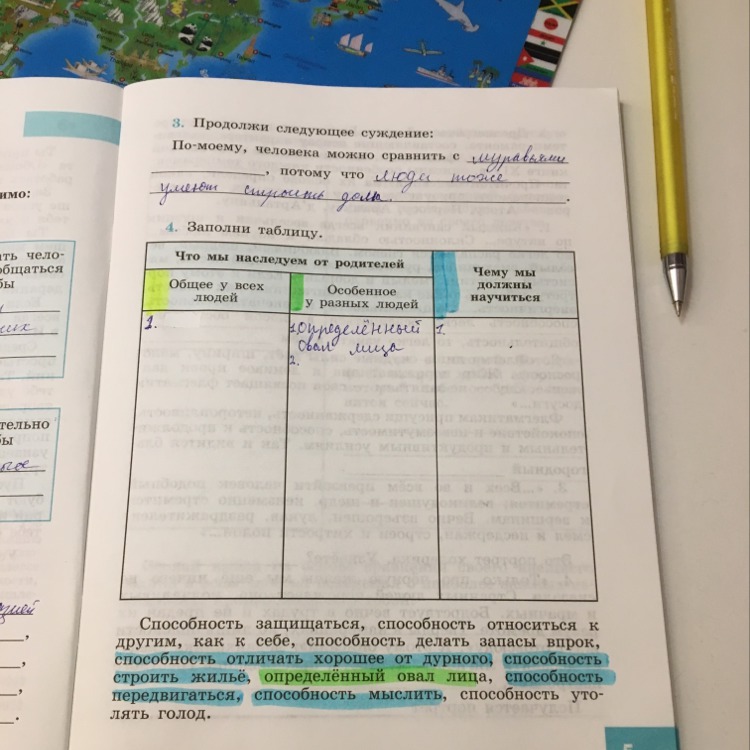 имо:
ать чело-
общаться
бы
них
тельно
бы
3. Продолжи следующее суждение:
По-моему, человека можно сравнить с муравьями
, потому что люди тоже
умеют строить дома.
4. Заполни таблицу.
Что мы наследуем от родителей
Общее у всех
людей
Особенное
у разных людей
Чему мы
должны
научиться
1.
1. Определённый
овал лица
2.
1.
Способность защищаться, способность относиться к
другим, как к себе, способность делать запасы впрок,
способность отличать хорошее от дурного, способность
строить жильё, определённый овал лица, способность
передвигаться, способность мыслить, способность уто-
лять голод.
5